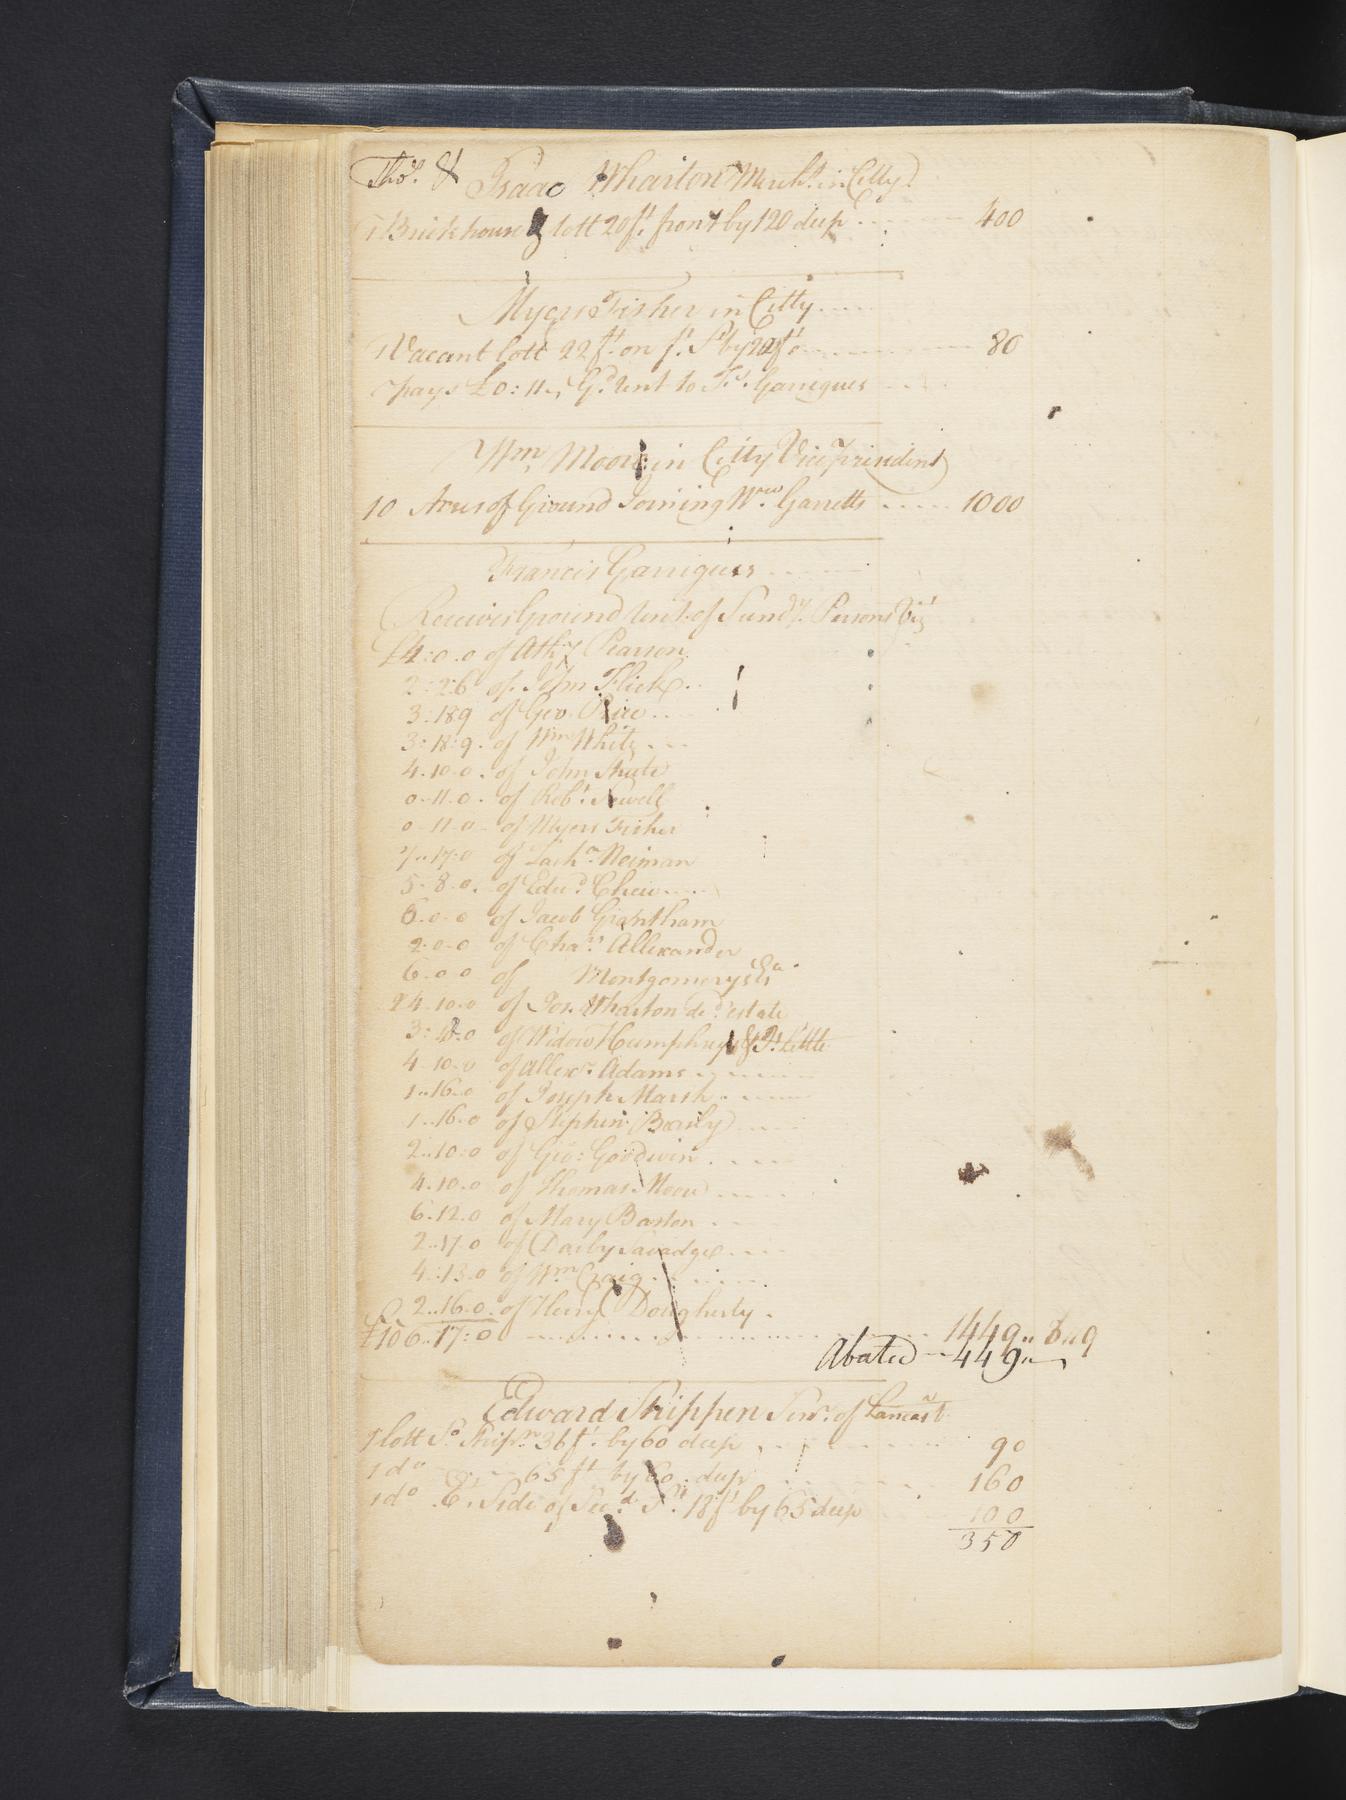 Thos. & Isaac Wharton Mercht. in Citty
1 Brick house & lott 20 ft. front by 120 deep 400
Myers Fisher in Citty
1 Vacant lott 22 ft. on f. St. by 80
pays £0:11 Gd. Rent to Fs. Garrigues
Wm. Moore in Citty Vice President
10 Acres of Ground Joining Garretts 1000
Francis Garrigues
Receives Ground Rent of Sundy. Persons Vizt
£4:0.0 of Pearson
2:2:6 of John Flick
3:18 9 of Geo. Rice
3:18:9. of Wm. White
4.10.0. of John Shute
0.11.0. of Robt. Sewell
0.11.0 of Myers Fisher
7..17:0 of Zachr. Neiman
5.8.0. of Edwd. Chew
6.0.0 of Jacob Grantham
2.0.0 of Chas. Allexander
6.0 0 of Montgomerys
24.10.0 of Jos. Wharton decd. estate
3: 0 of Widow Humphreys & Little
4.10.0 of Allexr. Adams
1..16.0 of Joseph Marsh
1..16.0 of Stephen
2..10:0 of Geo: Goodwin
4.10.0 of Thomas Moore
6.12.0 of Mary Barton
2..17.0 of Darby Savadge
4:13.0 of Wm. Craig
2..16.0. of Henry Dougherty
£106..17:0 1449.. 8..9
Abated 449..
Edward Shippen Senr. of Lancastr.
1 lott So. Shipn. 36 ft. by 60 deep 90
1 do 65 ft by 60 deep 160
1 do. Et. Side of Secd. St. 18 ft by 65 deep 100
350